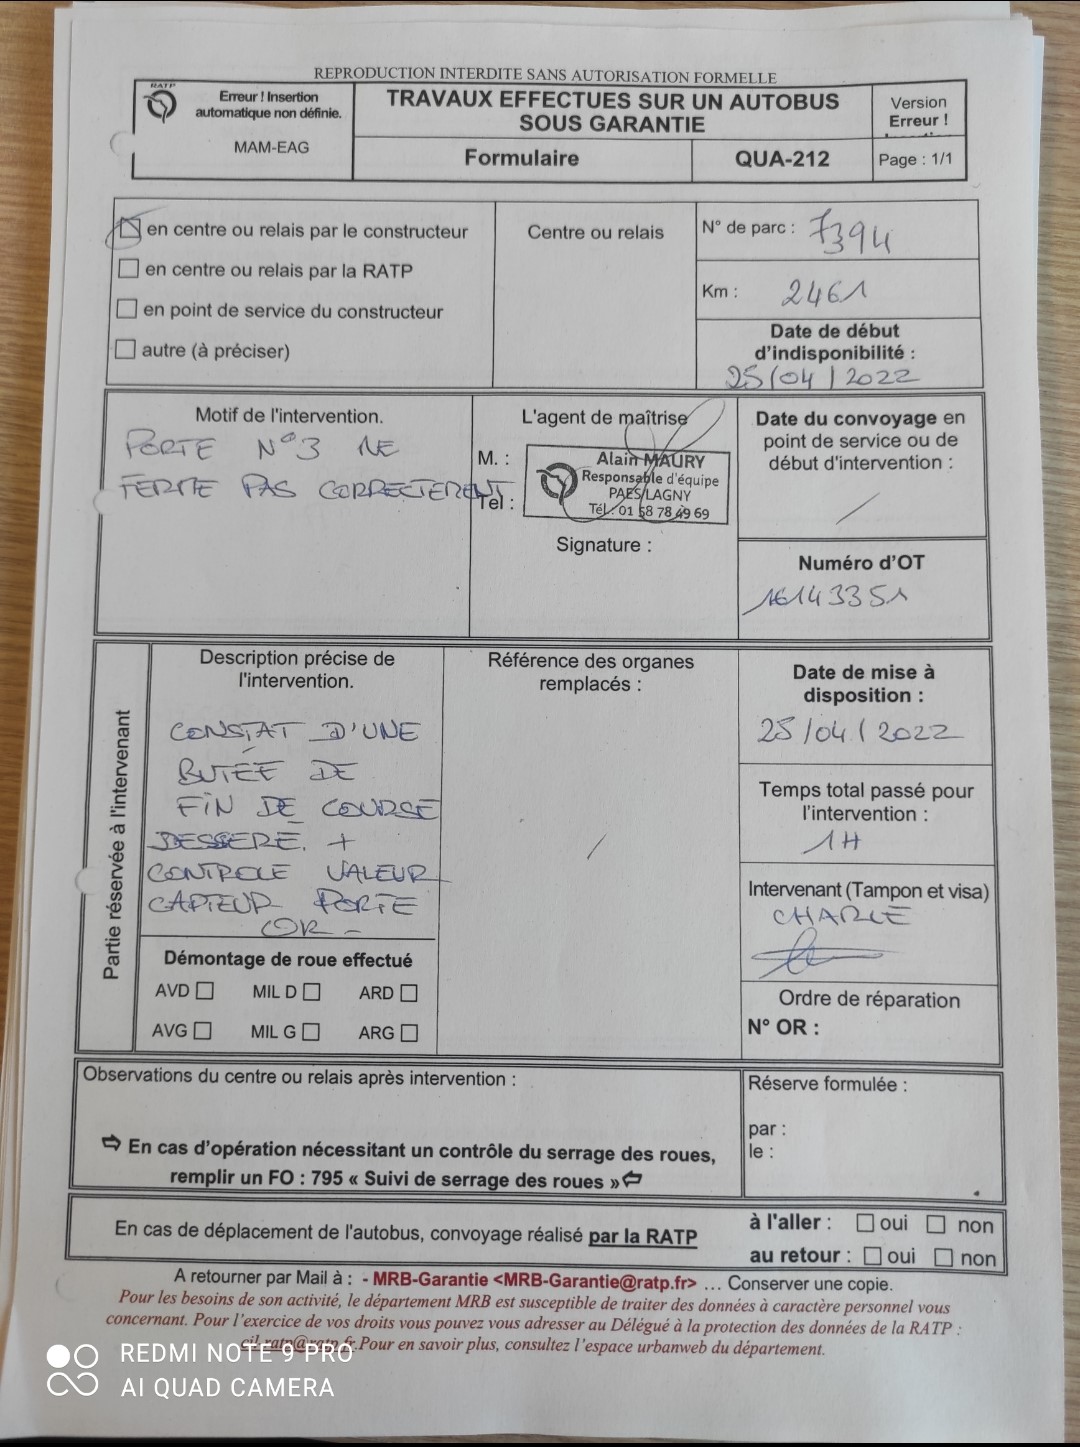 REPRODUCTION INTERDITE SANS AUTORISATION FORMELLE
RATP
Erreur ! Insertion
automatique non définie.
MAM-EAG
TRAVAUX EFFECTUES SUR UN AUTOBUS
SOUS GARANTIE
Version
Erreur !
Formulaire
QUA-212
Page : 1/1
en centre ou relais par le constructeur
en centre ou relais par la RATP
en point de service du constructeur
autre (à préciser)
Centre ou relais
N° de parc : 7394
Km : 2461
Date de début
d'indisponibilité :
25/04/2022
Motif de l'intervention.
PORTE N°3 NE
FERME PAS CORRECTEMENT
L'agent de maîtrise
M. :
Tel :
Alain MAURY
Responsable d'équipe
PAES/LAGNY
Tél. : 01 58 78 49 69
Signature :
Date du convoyage en
point de service ou de
début d'intervention :
/
Numéro d'OT
16143351
Partie réservée à l'intervenant
Description précise de
l'intervention.
CONSTAT D'UNE
BUTÉE DE
FIN DE COURSE
DESSERE. +
CONTROLE VALEUR
CAPTEUR PORTE
OK -
Démontage de roue effectué
AVD MIL D ARD
AVG MIL G ARG
Référence des organes
remplacés :
/
Date de mise à
disposition :
25/04/2022
Temps total passé pour
l'intervention :
1H
Intervenant (Tampon et visa)
CHARLE
Ordre de réparation
N° OR :
Observations du centre ou relais après intervention :
⇨ En cas d'opération nécessitant un contrôle du serrage des roues,
remplir un FO : 795 « Suivi de serrage des roues »⇦
Réserve formulée :
par :
le :
En cas de déplacement de l'autobus, convoyage réalisé par la RATP
à l'aller : oui non
au retour : oui non
A retourner par Mail à : - MRB-Garantie <MRB-Garantie@ratp.fr> … Conserver une copie.
Pour les besoins de son activité, le département MRB est susceptible de traiter des données à caractère personnel vous
concernant. Pour l'exercice de vos droits vous pouvez vous adresser au Délégué à la protection des données de la RATP :
cil.ratp@ratp.fr.Pour en savoir plus, consultez l'espace urbanweb du département.
REDMI NOTE 9 PRO
AI QUAD CAMERA